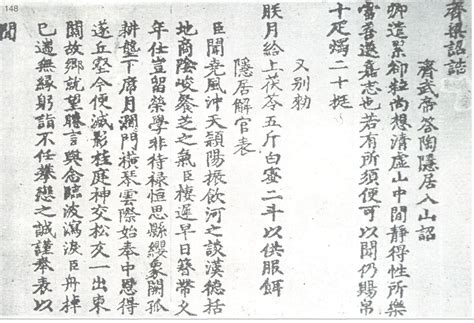 148
齊梁詔誥
齊武帝答陶隱居入山詔
卿遣累卻粒尚想清虛山中閒靜得性所樂
當善遂嘉志也若有所須便可以聞仍賜帛
十疋燭二十挺
又別勑
朕月給上茯苓五斤白蜜二斗以供服餌
隱居解官表
臣聞堯風沖天潁陽振飲河之談漢德括
地商陰峻餐芝之氣臣棲遲早日簪帶久
年仕豈留榮學非待祿恒思縣纓象闕孤
耕壟下席月澗門橫琴雲際始奉中恩得
遂丘壑今便滅影桂庭神交松友一出東
關故鄉就望睠言興念臨波瀉淚臣舟棹
已遄無緣躬詣不任攀戀之誠謹奉表以
聞